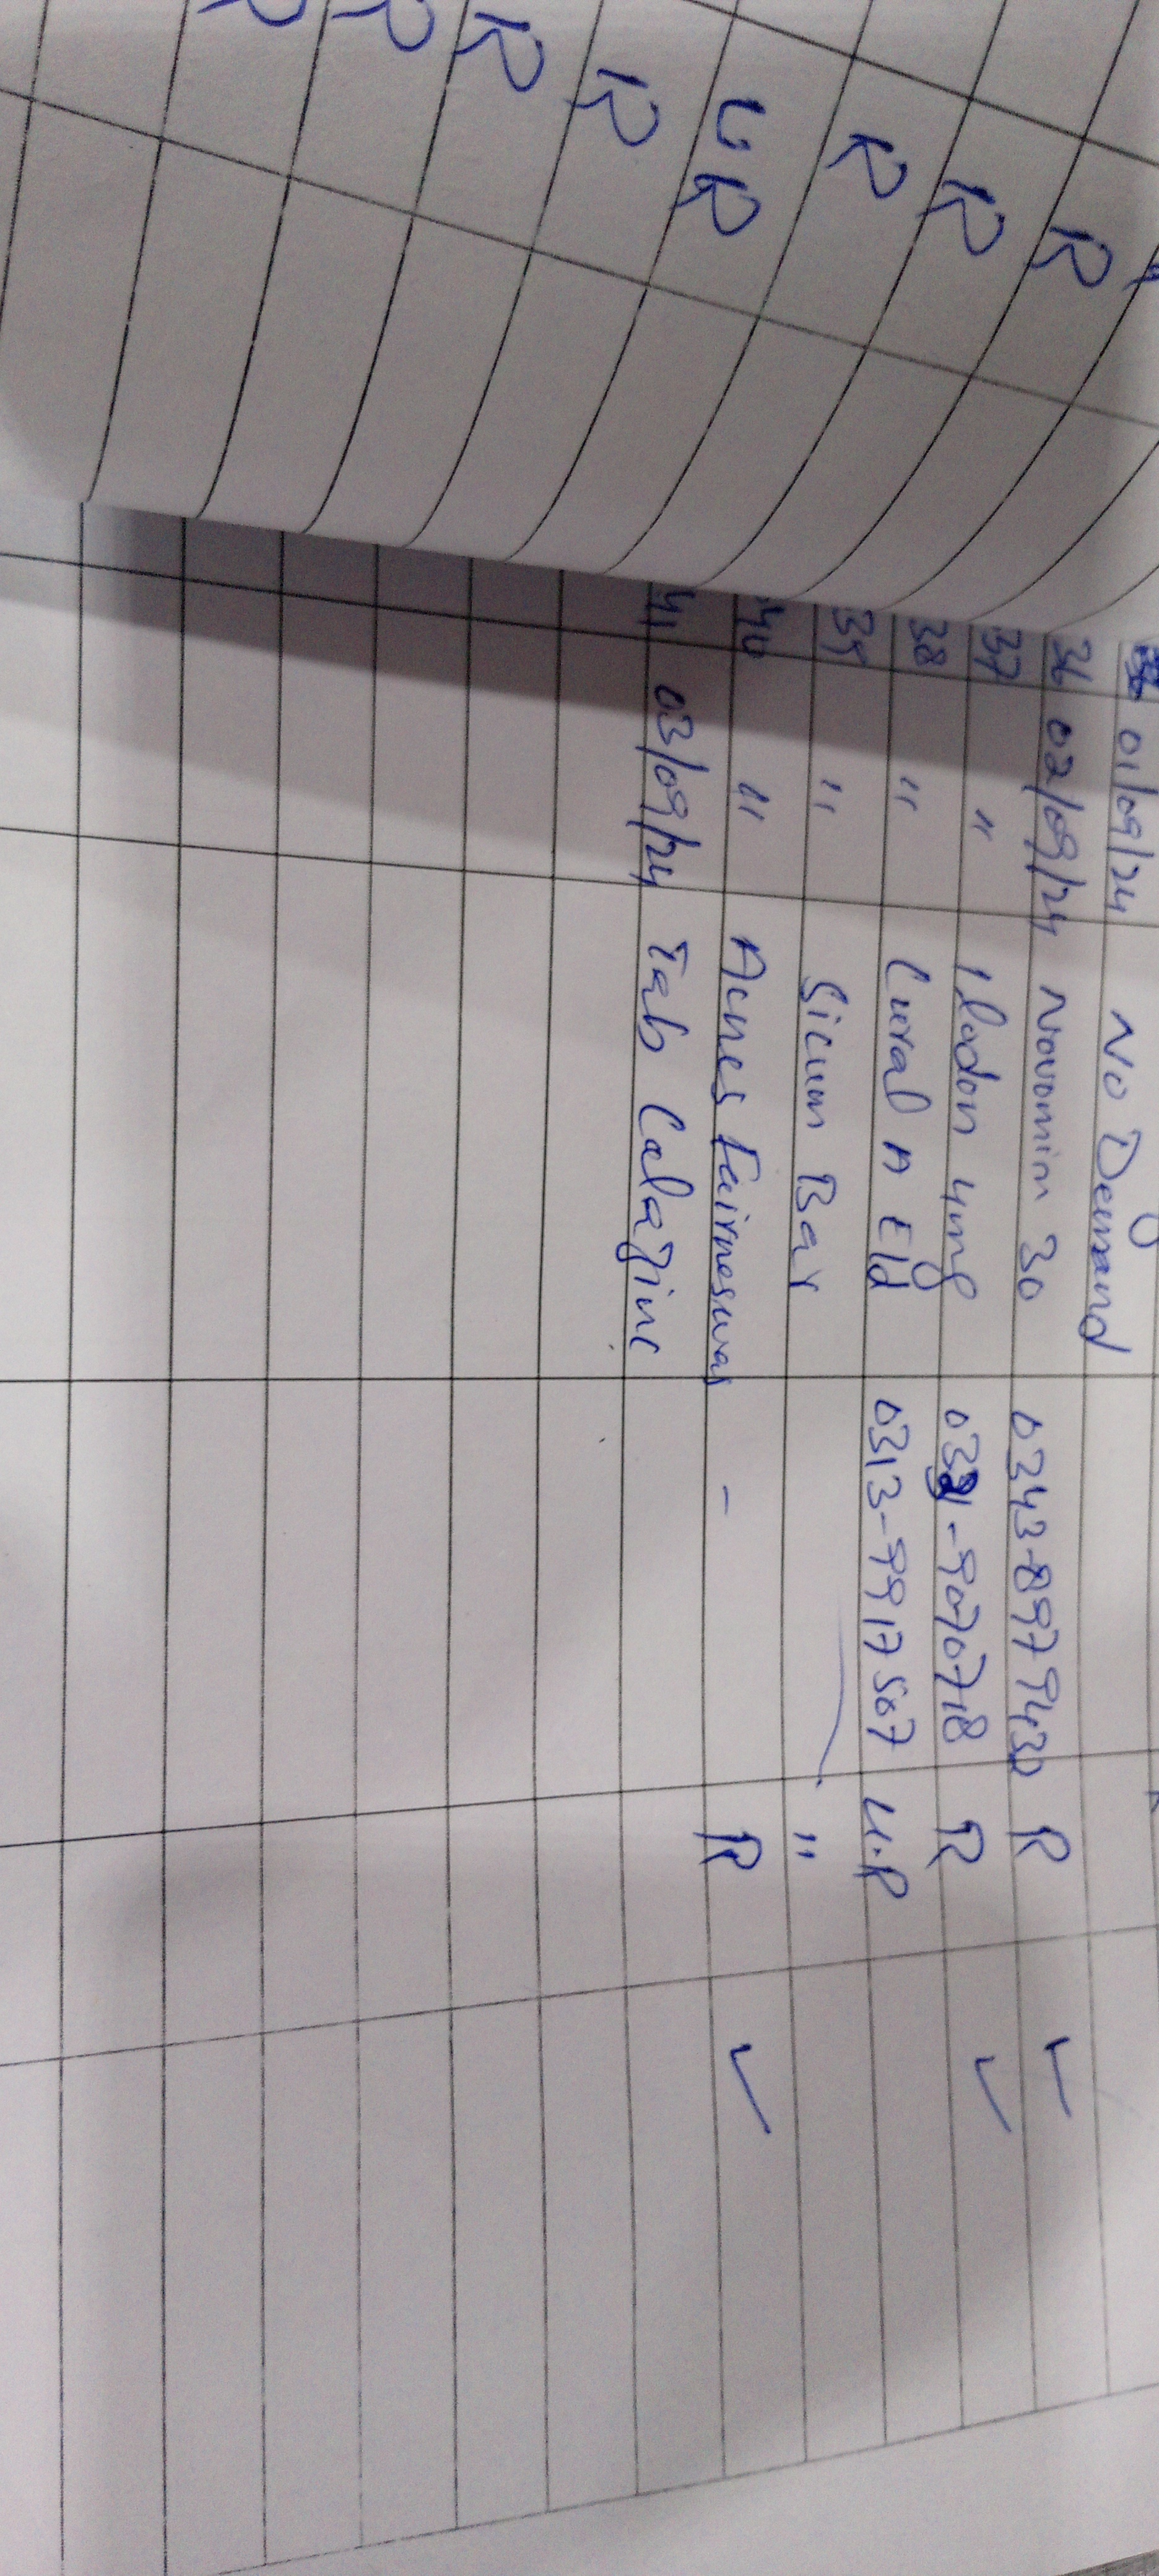 R
R
R
UR
R
R
R
01/09/24 No Demand
36 02/09/24 Novomin 30 0343-8979430 R ✓
37 " Iladon 4mg -9070718 R ✓
38 " Cural A Eld 0313-9917567 U.R
" Sicum Bar "
40 " Acnes Fairneswas - R ✓
41 03/09/24 Tab Calazine